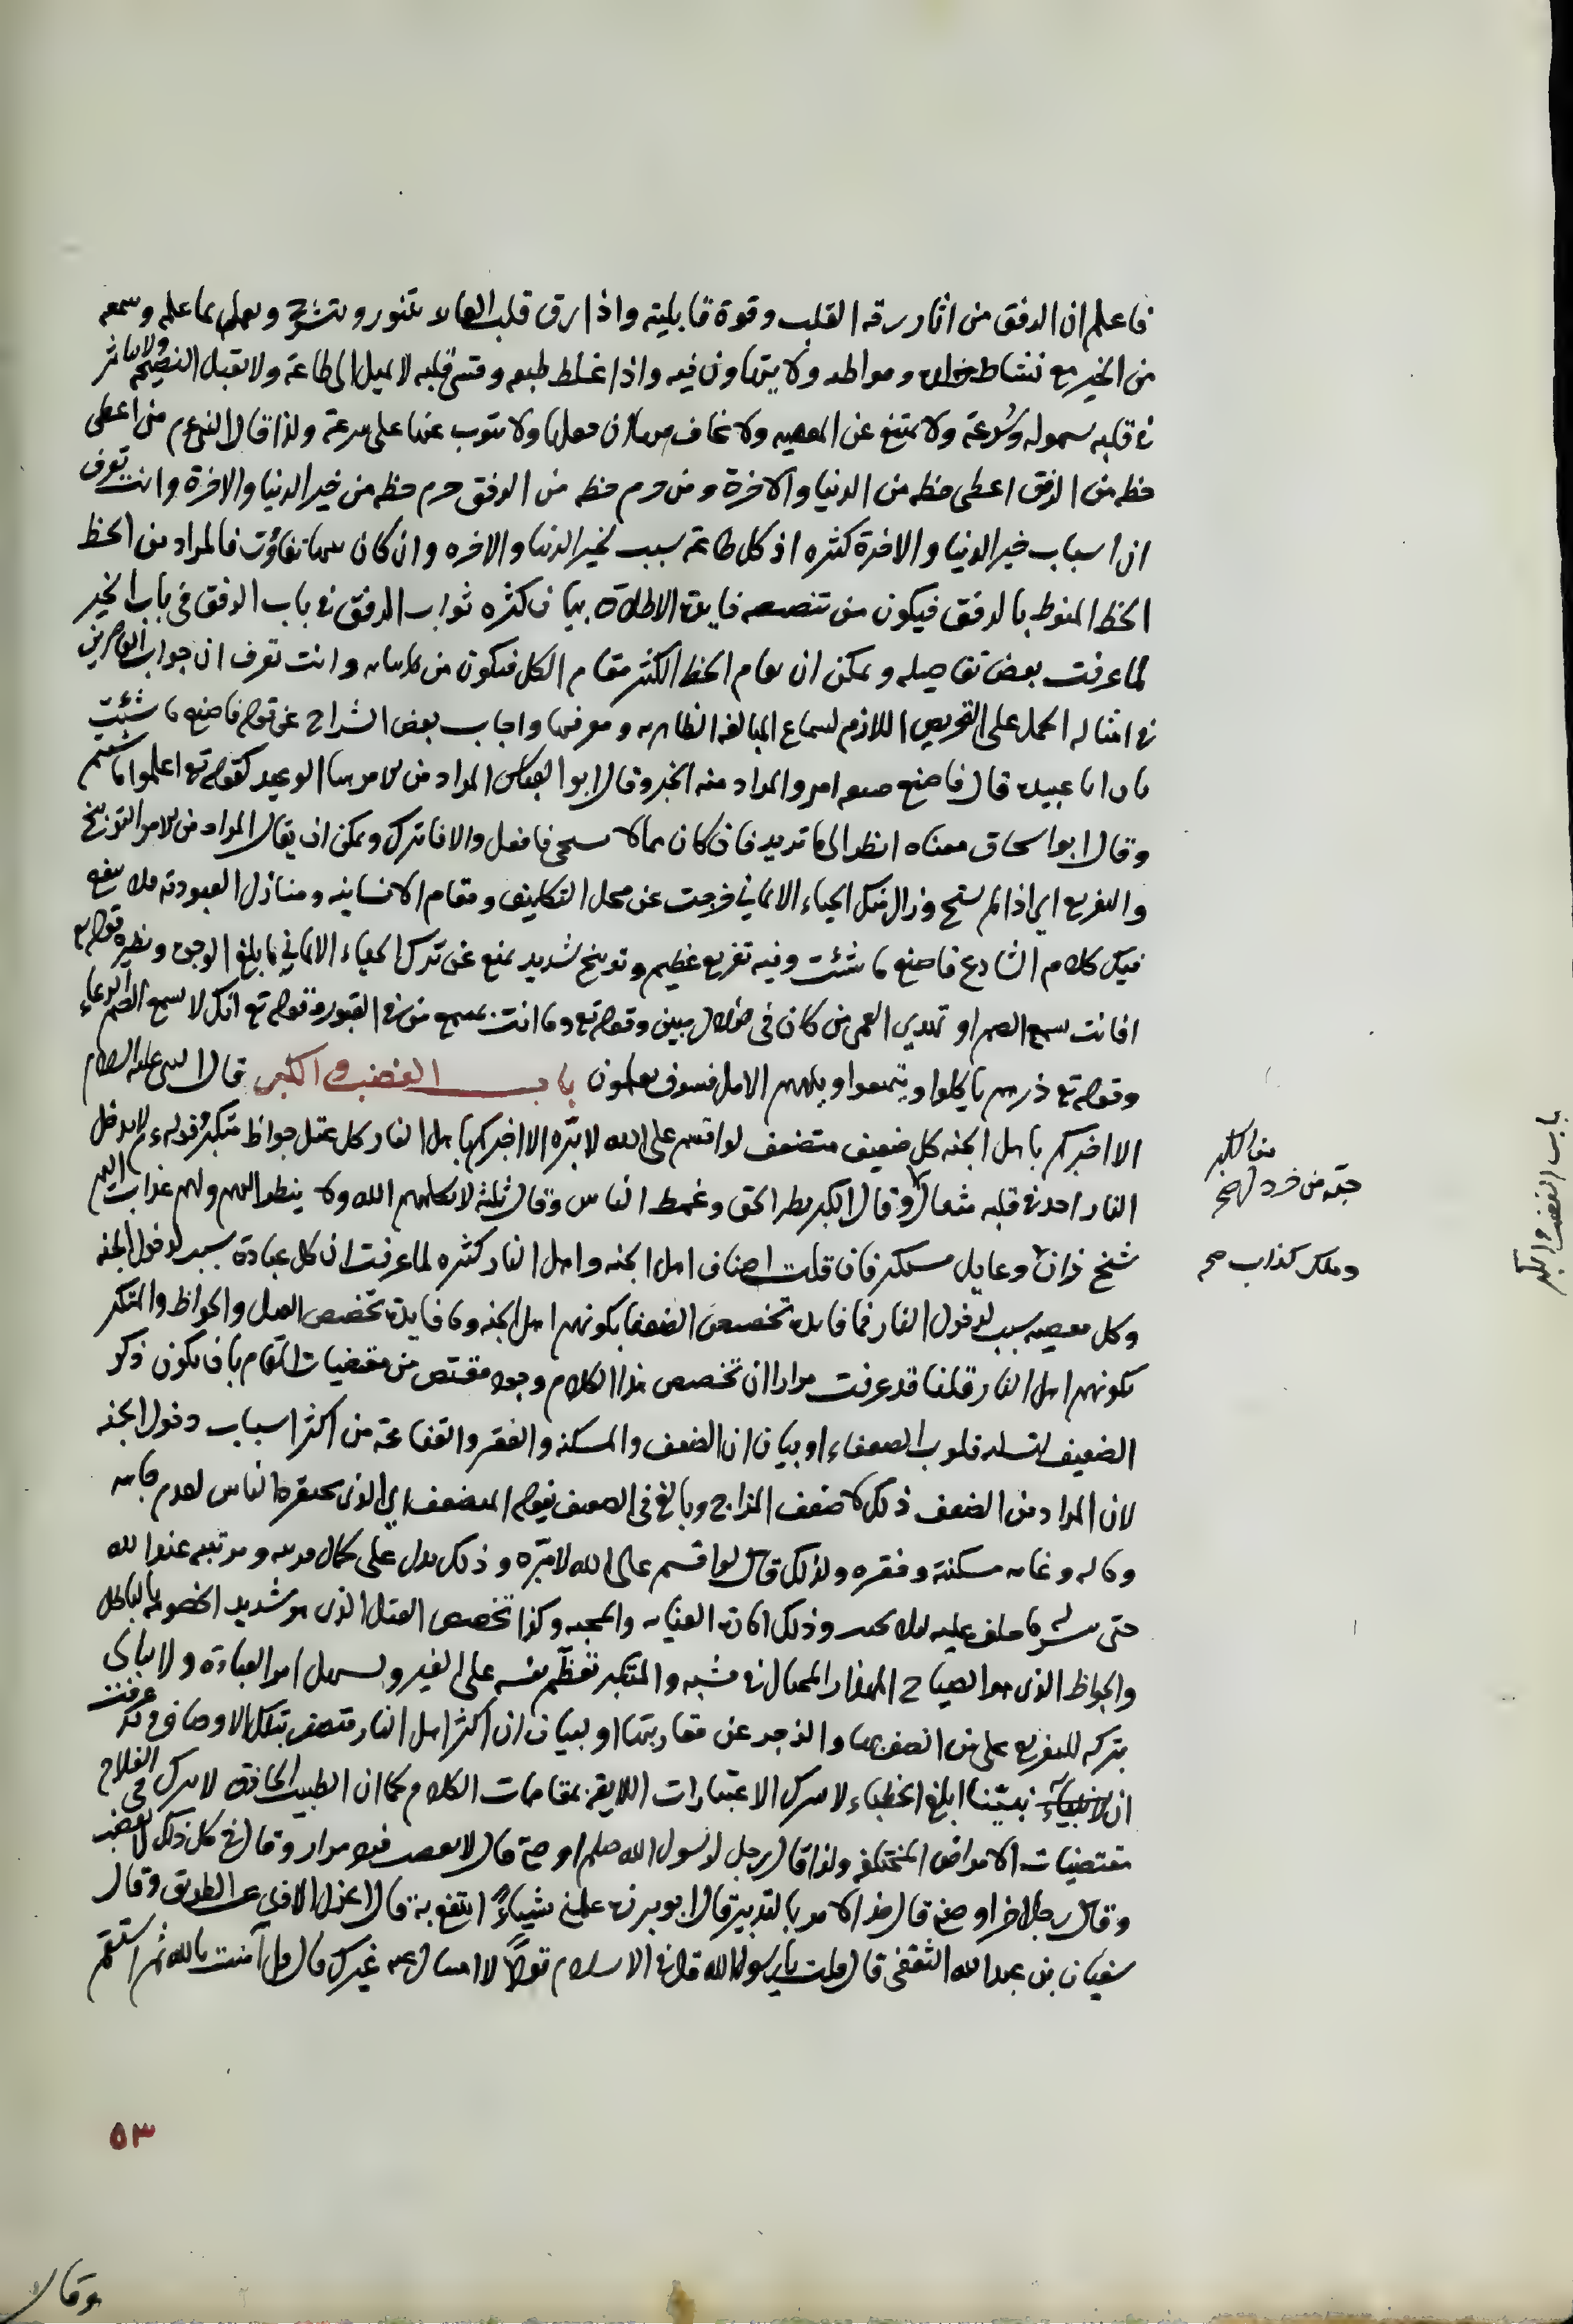 فاعلم ان الرفق من اثار رقة القلب وقوة قابليته واذا رق قلب العالا يتنور وينشرح ويعمل بما علمه وسمعه
من الخير مع نشاط ومواظبه ولا يتهاون فيه واذا غلظ طبعه وقسى قلبه لا يميل الى طاعة ولا يقبل النصيحة ولا يتاثر
في قلبه بسهوله وسرعة ولا يمتنع عن المعصيه ولا يخاف من ان فعلها ولا يتوب عنها على سرعة ولذا قال النبي عم من اعطى
حظه من الرفق اعطى حظه من الدنيا والاخرة ومن حرم حظه من الرفق حرم حظه من خير الدنيا والاخرة وانت تعرف
ان اسباب خير الدنيا والاخرة كثيره اذ كل طاعة سبب لخير الدنيا والاخره وان كان بينها تفاوت فالمراد من الحظ
الحظ المنوط بالرفق فيكون من فايدة الاطلاق بيان كثره ثواب الرفق في باب الرفق في باب الخير
لما عرفت بعض تفاصيله ويمكن ان يقام الحظ الكثير مقام الكل فيكون من وانت تعرف ان جواب
في امثاله الحمل على التحريض اللازم لسماع المبالغه الظاهره ومعرفتها واجاب بعض الشراح عن قوله فاصنع ما شئت
بان ابا عبيدة قال فاصنع صيغه امر والمراد منه الخبر وقال ابو العباس المراد من الامر هنا الوعيد كقوله تع اعملوا ما شئتم
وقال ابو اسحاق معناه انظر الى ما تريد فان كان مما لا يستحي فافعل والا فاترك ويمكن ان يقال المراد من الامر التوبيخ
والتقريع اي اذا لم تستح وزال منك الحياء الايماني خرجت عن محل التكليف ومقام الانسانيه ومنازل العبوديه فلا ينفع
فيك كلام الشارع فاصنع ما شئت وفيه تقريع عظيم وتوبيخ شديد يمنع عن ترك الحياء الايماني بابلغ الوجوه ونظيره قوله تع
افانت تسمع الصم او تهدي العمى من كان في ضلال مبين وقوله تع وما انت بمسمع من في القبور وقوله تع انك لا تسمع الصم الدعاء
وقوله تع ذرهم ياكلوا ويتمتعوا ويلههم الامل فسوف يعلمون باب الغضب والكبر قال النبي عليه السلام
الا اخبركم باهل الجنه كل ضعيف متضعف لو اقسم على الله لابره الا اخبركم باهل النار كل عتل جواظ متكبر وقوله عم لا يدخل
النار احد في قلبه مثقال وقال الكبر بطر الحق وغمط الناس وقال ثلثة لا يكلمهم الله ولا ينظر اليهم ولهم عذاب اليم
شيخ زان وعايل مستكبر فان قلت اصناف اهل الجنه واهل النار كثيره لما عرفت ان كل عبادة سبب لدخول الجنه
وكل معصيه سبب لدخول النار فما فايدة تخصيص الضعفا بكونهم اهل الجنه وما فايدة تخصيص العتل والجواظ والمتكبر
بكونهم اهل النار قلنا قد عرفت مرارا ان تخصيص هذا الكلام من مقتضيات المقام بان يكون ذكر
الضعيف لتسليه قلوب الضعفاء او بيان ان الضعف والمسكنه والفقر والقناعة من اكثر اسباب دخول الجنه
لان المراد من الضعف ذلك لا ضعف المزاج وبالغ في الضعيف بقوله المتضعف اي الذي يحتقره الناس لعدم جاهه
وماله وغايه مسكنته وفقره ولذلك قال لو اقسم على الله لابره وذلك يدل على كمال قربه ومرتبته عند الله
حتى ما حلف عليه وذلك العنايه والمحبه وكذا تخصيص العتل الذي هو شديد الخصومه بالباطل
والجواظ الذي هو الصياح المختال في مشيه والمتكبر تعظم نفسه على الغير ويسهل امر العبادة ولا يبالي
بتركه للتقريع على من اتصف بها والزجر عن مقاربتها او لبيان ان اكثر اهل النار متصف بتلك الاوصاف وقد عرفت
ان نبينا ابلغ الخطباء لا يترك الاعتبارات اللايقة بمقامات الكلام كما ان الطبيب الحاذق لا يترك العلاج في
مقتضيات الامراض المختلفه ولذا قال رجل لرسول الله صلعم اوصني قال لا تغضب فردد مرارا وقال في كل ذلك لا تغضب
وقال رجل اخر اوصني قال خذ الامر بالتدبير قال ابو برزة علمني شيئا انتفع به قال اعزل الاذى عن الطريق وقال
سفيان بن عبد الله الثقفي قال قلت يا رسول الله قل لي في الاسلام قولا لا اسال عنه غيرك قال قل آمنت بالله ثم استقم
من الكبر
حبة من خردل صح
وملك كذاب صح
باب الغضب والكبر
٥٣
وقال